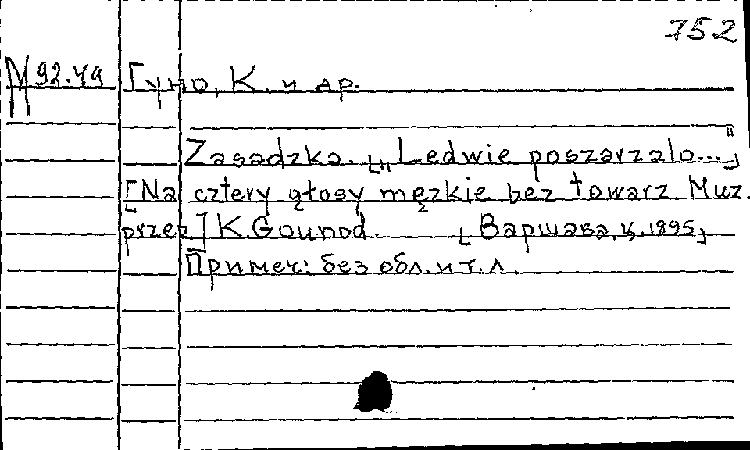 752
М 92.49 Гуно, К. и др.
Zasadzka. [„Ledwie poszarzało..."]
[Na cztery głosy męzkie bez towarz Muz.
przez] K Gounod. [Варшава, ц. 1895]
Примеч: без обл. и т. л.